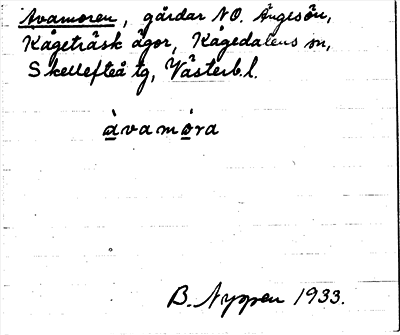 Avamoren, gårdar NO. Ängesön,
Kågeträsk ägor, Kågedalens sn,
Skellefteå tg, Västerb. l.
àvamòra
B. Nyppen 1933.